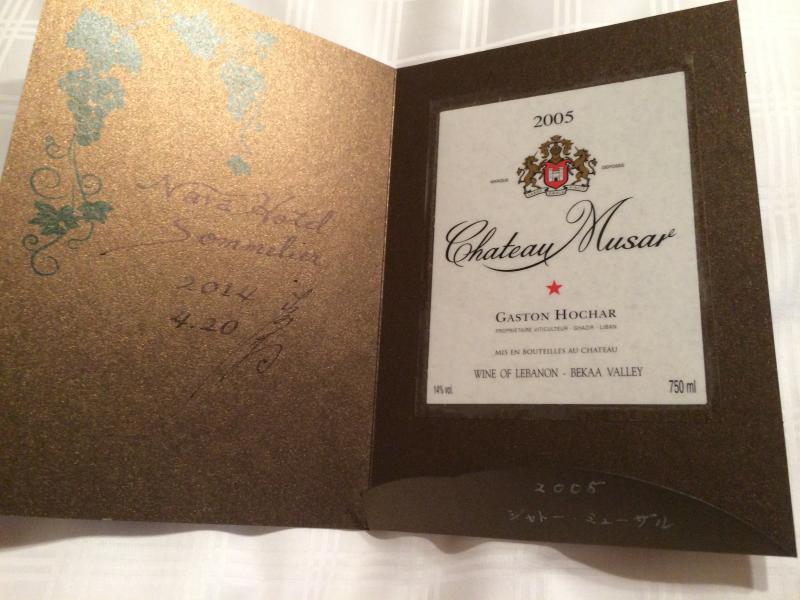 Nara Hotel
Sommelier
2014
4.20
2005
MARQUE DEPOSEE
Chateau Musar
GASTON HOCHAR
PROPRIETAIRE VITICULTEUR - GHAZIR - LIBAN
MIS EN BOUTEILLES AU CHATEAU
WINE OF LEBANON - BEKAA VALLEY
14% vol. 750 ml
2005
シャトー・ミューザル